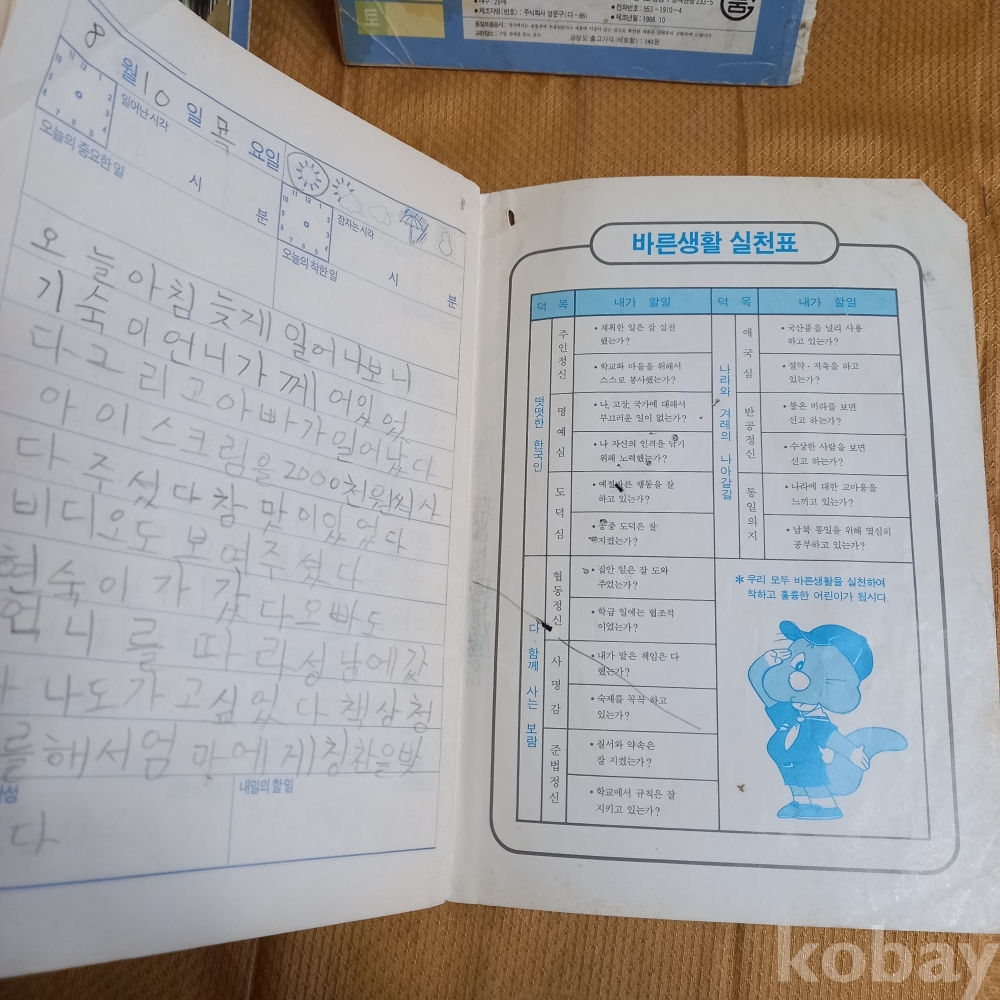 토
• 매수: 28매
• 제조자명(번호): 주식회사 영문구(다-86)
• 전화번호: 553-1910~4
• 제조년월: 1988.10
공장도 출고가격(세포함): 140원
8월 10일 목요일
일어난시각
시 분
잠자는시각
시 분
오늘의 중요한 일
오늘의 착한 일
오늘아침 늦게 일어나보니
기숙이 언니가 깨어있었
다 그리고 아빠가 일어났다
아이스크림을 2000천원씩 사
다 주셨다 참 맛이있었다
비디오도 보여주셨다
현숙이가 갔다 오빠도
언니를 따라 성남에 갔
나도 가고싶었다 책상 청
를 해서 엄마에게 칭찬을 받
다
내일의 할 일
바른생활 실천표
덕 목 내가 할일 덕 목 내가 할일
떳떳한 한국인
주인정신
• 계획한 일은 잘 실천
했는가?
• 학교와 마을을 위해서
스스로 봉사했는가?
명예심
• 나, 고장, 국가에 대해서
부끄러운 일이 없는가?
• 나 자신의 인격을 닦기
위해 노력했는가?
도덕심
• 예절바른 행동을 잘
하고 있는가?
• 공중 도덕은 잘
지켰는가?
다 함께 사는 보람
협동정신
• 집안 일은 잘 도와
주었는가?
• 학급 일에는 협조적
이었는가?
사명감
• 내가 맡은 책임은 다
했는가?
• 숙제를 꼭꼭 하고
있는가?
준법정신
• 질서와 약속은
잘 지켰는가?
• 학교에서 규칙은 잘
지키고 있는가?
나라와 겨레의 나아갈길
애국심
• 국산품을 널리 사용
하고 있는가?
• 절약·저축을 하고
있는가?
반공정신
• 불온 삐라를 보면
신고 하는가?
• 수상한 사람을 보면
신고 하는가?
통일의지
• 나라에 대한 고마움을
느끼고 있는가?
• 남북 통일을 위해 열심히
공부하고 있는가?
* 우리 모두 바른생활을 실천하여
착하고 훌륭한 어린이가 됩시다.
kobay